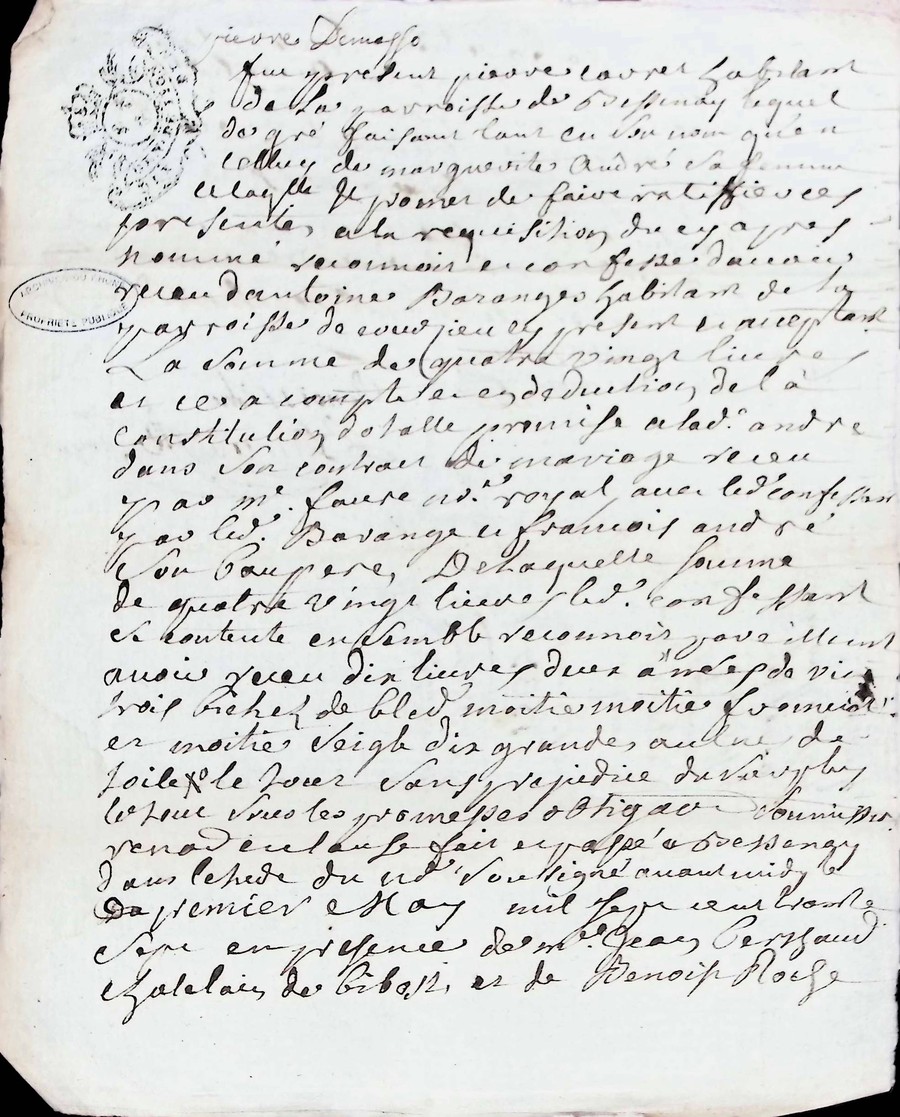 pierre
fut present pierre carret habitant
de la parroisse de Bessenay lequel
de gré faisant tant en son nom qu'en
celluy de marguerite André sa femme
a laqlle Il promet de faire ratiffier ces
presentes a la requisition du cy apres
nommé reconnoit et confesse d'avoir
receu d'antoine Barange habitant de la
parroisse de courzieu cy present et acceptant
La somme de quatre vingt livres
et ce a compte et en deduction de la
Constitution dotalle promise a lad. andre
dans son contrat de mariage receu
par me. faure nore royal avec led confessant
par led. Barange et francois andré
Son beaupere, De laquelle somme
de quatre vingt livres led. confessant
se contente ensemble reconnoit pareillement
avoir receu dix livres deux années de vin
trois bichet de bled moitié moitié froment
et moitié seigle dix grandes aulne de
toile le tout sans prejudice du surplus
le tout sous les promesses obligaon soumission
renon et clause fait et passé a Bessenay
dans l'etude du nore soussigné avant midy le
premier May mil sept cent trente
sept en presence de me. Jean
Chatelain de et de Benoist Roche
ARCHIVES DU RHONE
PROPRIETE PUBLIQUE